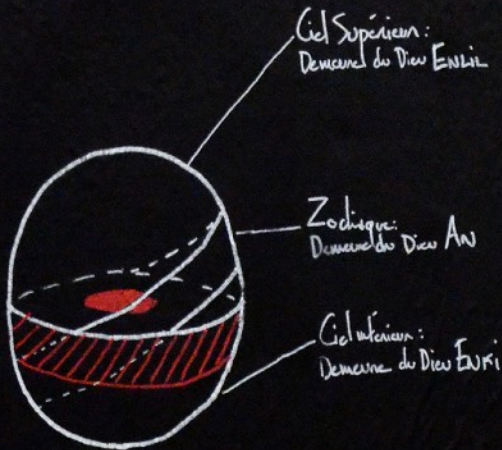 Ciel Supérieur:
Demeure du Dieu ENLIL
Zodiaque:
Demeure du Dieu AN
Ciel inférieur:
Demeure du Dieu ENKI